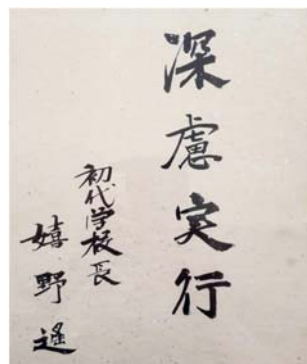 深慮実行
初代学校長
嬉野遥